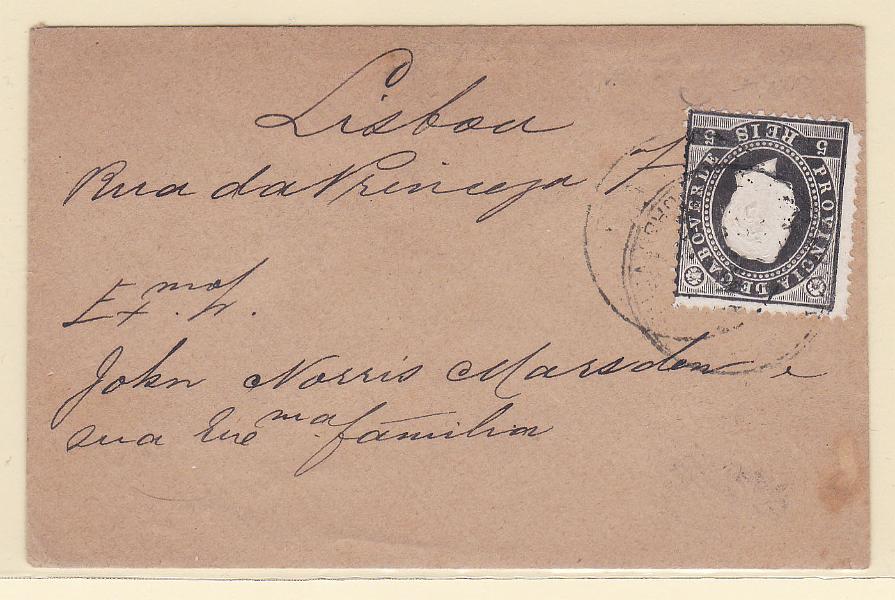 Lisboa
Rua da Princeza 7
Exmo. Sr.
John Norris Marsden e
sua Exema. familia
5 REIS 5
PROVINCIA DE CABO-VERDE